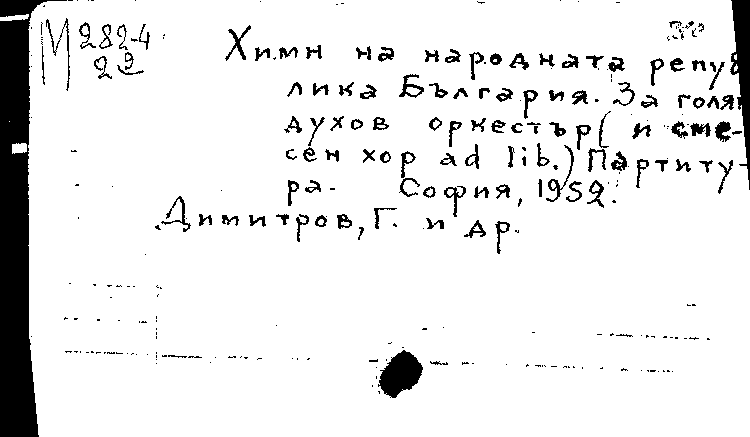 М 282-4
22
Химн на народната репуб
лика България. За голям
духов оркестър ( и сме-
сен хор ad lib.) Партиту-
ра. София, 1952.
Димитров, Г. и др.